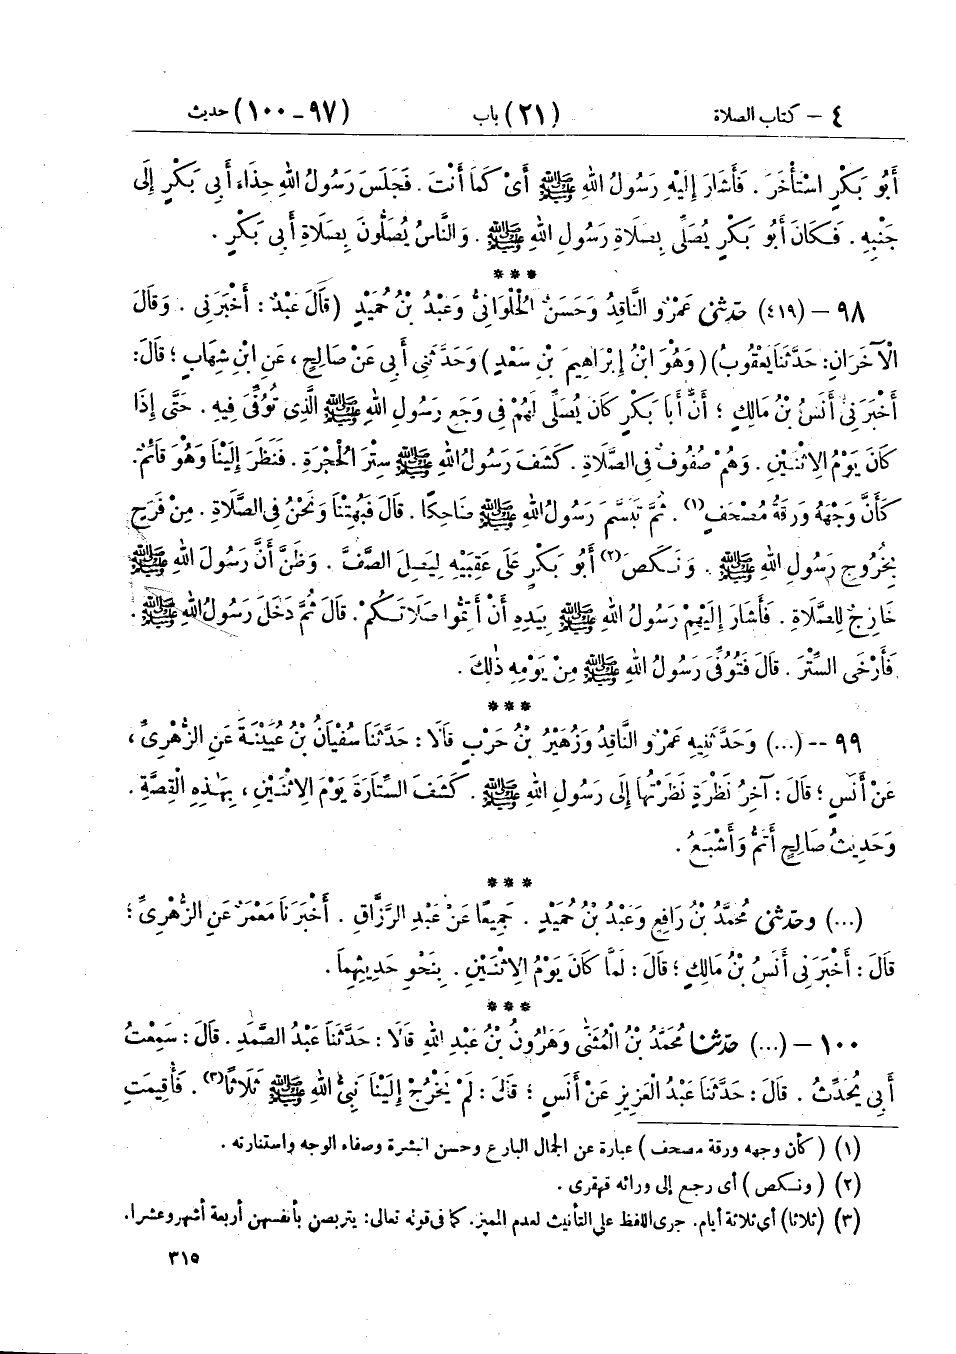 ٤ – كتاب الصلاة (٢١) باب (٩٧-١٠٠) حديث
أَبُو بَكْرٍ اسْتَأْخَرَ . فَأَشَارَ إِلَيْهِ رَسُولُ اللهِ ﷺ أَىْ كَمَا أَنْتَ . فَجَلَسَ رَسُولُ اللهِ حِذَاءَ أَبِى بَكْرٍ إِلَى
جَنْبِهِ . فَكَانَ أَبُو بَكْرٍ يُصَلِّى بِصَلَاةِ رَسُولِ اللهِ ﷺ . وَالنَّاسُ يُصَلُّونَ بِصَلَاةِ أَبِى بَكْرٍ .
***
٩٨ – (٤١٩) حَدَّثَنِى عَمْرٌو النَّاقِدُ وَحَسَنٌ الْحُلْوَانِىُّ وَعَبْدُ بْنُ حُمَيْدٍ (قَالَ عَبْدٌ : أَخْبَرَنِى . وَقَالَ
الْآخَرَانِ: حَدَّثَنَا يَعْقُوبُ) (وَهُوَ ابْنُ إِبْرَاهِيمَ بْنِ سَعْدٍ) وَحَدَّثَنِى أَبِى عَنْ صَالِحٍ ، عَنِ ابْنِ شِهَابٍ ؛ قَالَ:
أَخْبَرَنِى أَنَسُ بْنُ مَالِكٍ ؛ أَنَّ أَبَا بَكْرٍ كَانَ يُصَلِّى لَهُمْ فِى وَجَعِ رَسُولِ اللهِ ﷺ الَّذِى تُوُفِّىَ فِيهِ . حَتَّى إِذَا
كَانَ يَوْمُ الِاثْنَيْنِ . وَهُمْ صُفُوفٌ فِى الصَّلَاةِ . كَشَفَ رَسُولُ اللهِ ﷺ سِتْرَ الْحُجْرَةِ . فَنَظَرَ إِلَيْنَا وَهُوَ قَائِمٌ.
كَأَنَّ وَجْهَهُ وَرَقَةُ مُصْحَفٍ(١) . ثُمَّ تَبَسَّمَ رَسُولُ اللهِ ﷺ ضَاحِكًا . قَالَ فَبُهِتْنَا وَنَحْنُ فِى الصَّلَاةِ . مِنْ فَرَحٍ
بِخُرُوجِ رَسُولِ اللهِ ﷺ . وَنَكَصَ(٢) أَبُو بَكْرٍ عَلَى عَقِبَيْهِ لِيَصِلَ الصَّفَّ . وَظَنَّ أَنَّ رَسُولَ اللهِ ﷺ
خَارِجٌ لِلصَّلَاةِ . فَأَشَارَ إِلَيْهِمْ رَسُولُ اللهِ ﷺ بِيَدِهِ أَنْ أَتِمُّوا صَلَاتَكُمْ . قَالَ ثُمَّ دَخَلَ رَسُولُ اللهِ ﷺ .
فَأَرْخَى السِّتْرَ . قَالَ فَتُوُفِّىَ رَسُولُ اللهِ ﷺ مِنْ يَوْمِهِ ذٰلِكَ .
***
٩٩ -- (...) وَحَدَّثَنِيهِ عَمْرٌو النَّاقِدُ وَزُهَيْرُ بْنُ حَرْبٍ قَالَا : حَدَّثَنَا سُفْيَانُ بْنُ عُيَيْنَةَ عَنِ الزُّهْرِىِّ ،
عَنْ أَنَسٍ ؛ قَالَ : آخِرُ نَظْرَةٍ نَظَرْتُهَا إِلَى رَسُولِ اللهِ ﷺ . كَشَفَ السِّتَارَةَ يَوْمَ الِاثْنَيْنِ ، بِهٰذِهِ الْقِصَّةِ .
وَحَدِيثُ صَالِحٍ أَتَمُّ وَأَشْبَعُ .
***
(...) وحَدَّثَنِى مُحَمَّدُ بْنُ رَافِعٍ وَعَبْدُ بْنُ حُمَيْدٍ . جَمِيعًا عَنْ عَبْدِ الرَّزَّاقِ . أَخْبَرَنَا مَعْمَرٌ عَنِ الزُّهْرِىِّ ؛
قَالَ : أَخْبَرَنِى أَنَسُ بْنُ مَالِكٍ ؛ قَالَ : لَمَّا كَانَ يَوْمُ الِاثْنَيْنِ . بِنَحْوِ حَدِيثِهِمَا .
***
١٠٠ – (...) حَدَّثَنَا مُحَمَّدُ بْنُ الْمُثَنَّى وَهَارُونُ بْنُ عَبْدِ اللهِ قَالَا : حَدَّثَنَا عَبْدُ الصَّمَدِ . قَالَ : سَمِعْتُ
أَبِى يُحَدِّثُ . قَالَ : حَدَّثَنَا عَبْدُ الْعَزِيزِ عَنْ أَنَسٍ ؛ قَالَ : لَمْ يَخْرُجْ إِلَيْنَا نَبِىُّ اللهِ ﷺ ثَلَاثًا(٣) . فَأُقِيمَتِ
(١) (كأن وجهه ورقة مصحف) عبارة عن الجمال البارع وحسن البشرة وصفاء الوجه واستنارته .
(٢) (ونكص) أى رجع إلى ورائه قهقرى .
(٣) (ثلاثا) أى ثلاثة أيام. جرى اللفظ على التأنيث لعدم المميز. كما فى قوله تعالى: يتربصن بأنفسهن أربعة أشهر وعشرا.
٣١٥